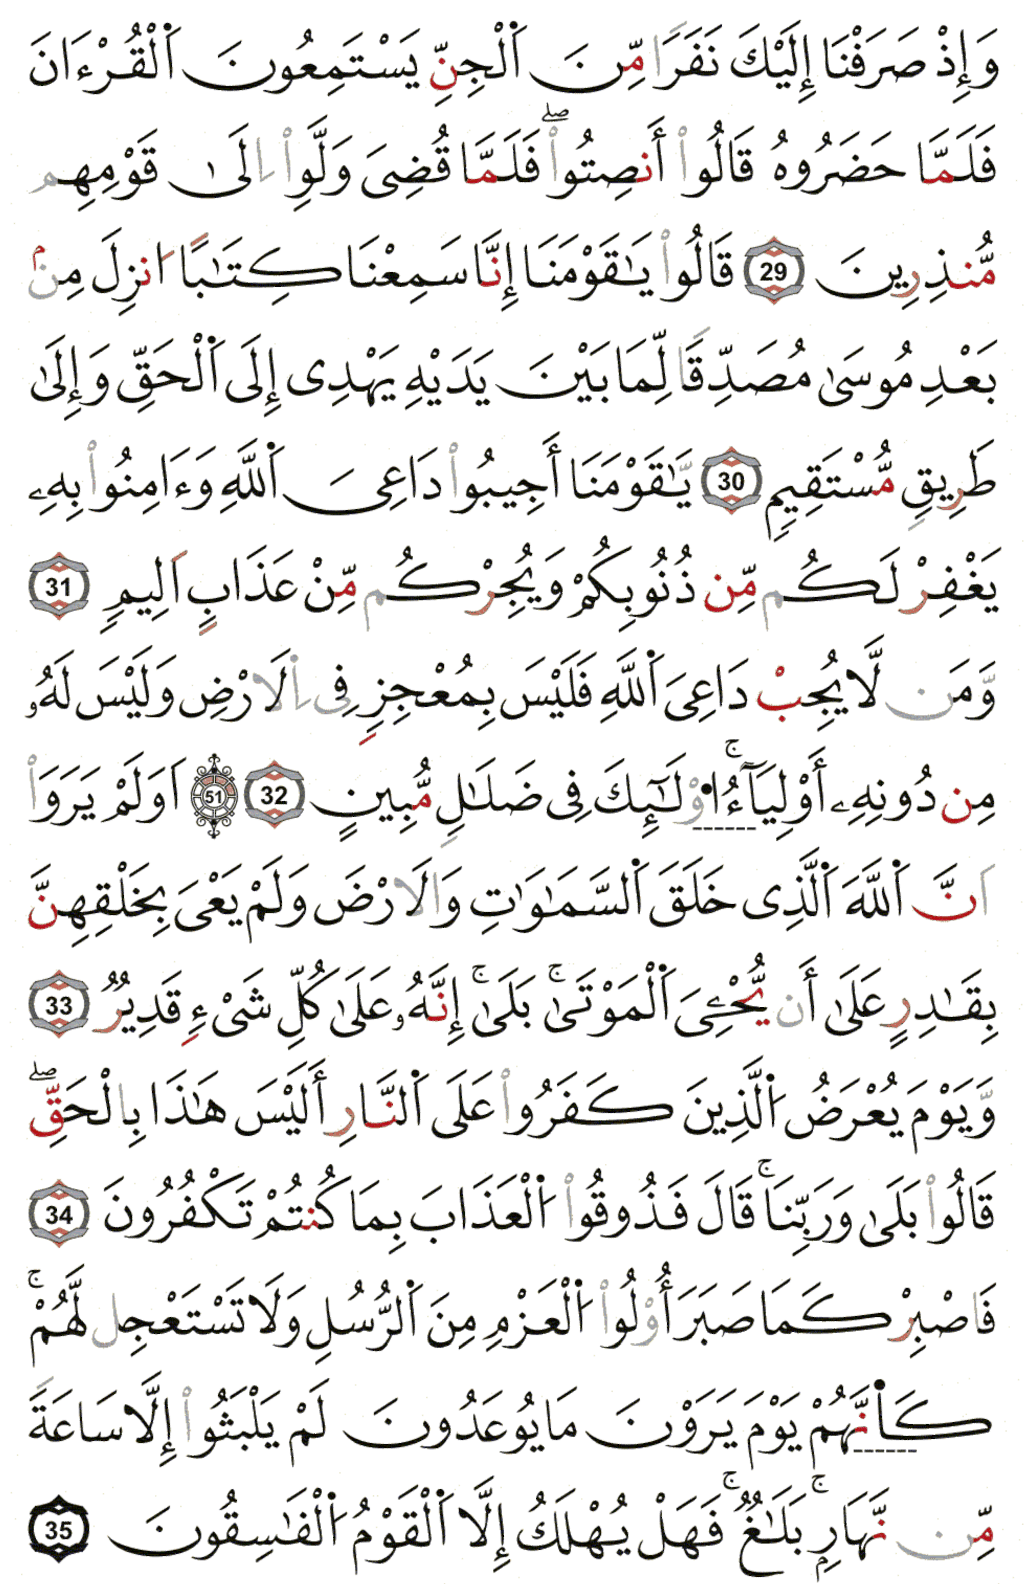 وَإِذْ صَرَفْنَا إِلَيْكَ نَفَرًا مِّنَ ٱلْجِنِّ يَسْتَمِعُونَ ٱلْقُرْءَانَ
فَلَمَّا حَضَرُوهُ قَالُوا۟ أَنصِتُوا۟ۖ فَلَمَّا قُضِىَ وَلَّوِا۟ اِلَىٰ قَوْمِهِم
مُّنذِرِينَ 29 قَالُوا۟ يَٰقَوْمَنَا إِنَّا سَمِعْنَا كِتَٰبًا اَنزِلَ مِنۢ
بَعْدِ مُوسَىٰ مُصَدِّقًا لِّمَا بَيْنَ يَدَيْهِ يَهْدِى إِلَى ٱلْحَقِّ وَإِلَىٰ
طَرِيقٍ مُّسْتَقِيمٍ 30 يَّٰقَوْمَنَا أَجِيبُوا۟ دَاعِىَ ٱللَّهِ وَءَامِنُوا۟ بِهِۦ
يَغْفِرْ لَكُم مِّن ذُنُوبِكُمْ وَيُجِرْكُم مِّنْ عَذَابٍ اَلِيمٍ 31
وَّمَن لَّا يُجِبْ دَاعِىَ ٱللَّهِ فَلَيْسَ بِمُعْجِزٍ فِى اِ۬لَارْضِ وَلَيْسَ لَهُۥ
مِن دُونِهِۦ أَوْلِيَآءُۚ ا۟وْلَٰٓئِكَ فِى ضَلَٰلٍ مُّبِينٍ 32 51 اَوَلَمْ يَرَوَا۟
اَنَّ ٱللَّهَ ٱلَّذِى خَلَقَ ٱلسَّمَٰوَٰتِ وَالَارْضَ وَلَمْ يَعْىَ بِخَلْقِهِنَّ
بِقَٰدِرٍ عَلَىٰ أَن يُّحْۦِىَ ٱلْمَوْتَىٰۚ بَلَىٰۚ إِنَّهُۥ عَلَىٰ كُلِّ شَىْءٍ قَدِيرٌ 33
وَّيَوْمَ يُعْرَضُ ٱلَّذِينَ كَفَرُوا۟ عَلَى ٱلنَّارِ أَلَيْسَ هَٰذَا بِالْحَقِّۖ
قَالُوا۟ بَلَىٰ وَرَبِّنَاۚ قَالَ فَذُوقُوا۟ ٱلْعَذَابَ بِمَا كُنتُمْ تَكْفُرُونَ 34
فَاصْبِرْ كَمَا صَبَرَ أُو۟لُوا۟ ٱلْعَزْمِ مِنَ ٱلرُّسُلِ وَلَا تَسْتَعْجِل لَّهُمْۚ
كَأَنَّهُمْ يَوْمَ يَرَوْنَ مَا يُوعَدُونَ لَمْ يَلْبَثُوا۟ إِلَّا سَاعَةً
مِّن نَّهَارٍۚ بَلَٰغٌۚ فَهَلْ يُهْلَكُ إِلَّا ٱلْقَوْمُ ٱلْفَٰسِقُونَ 35